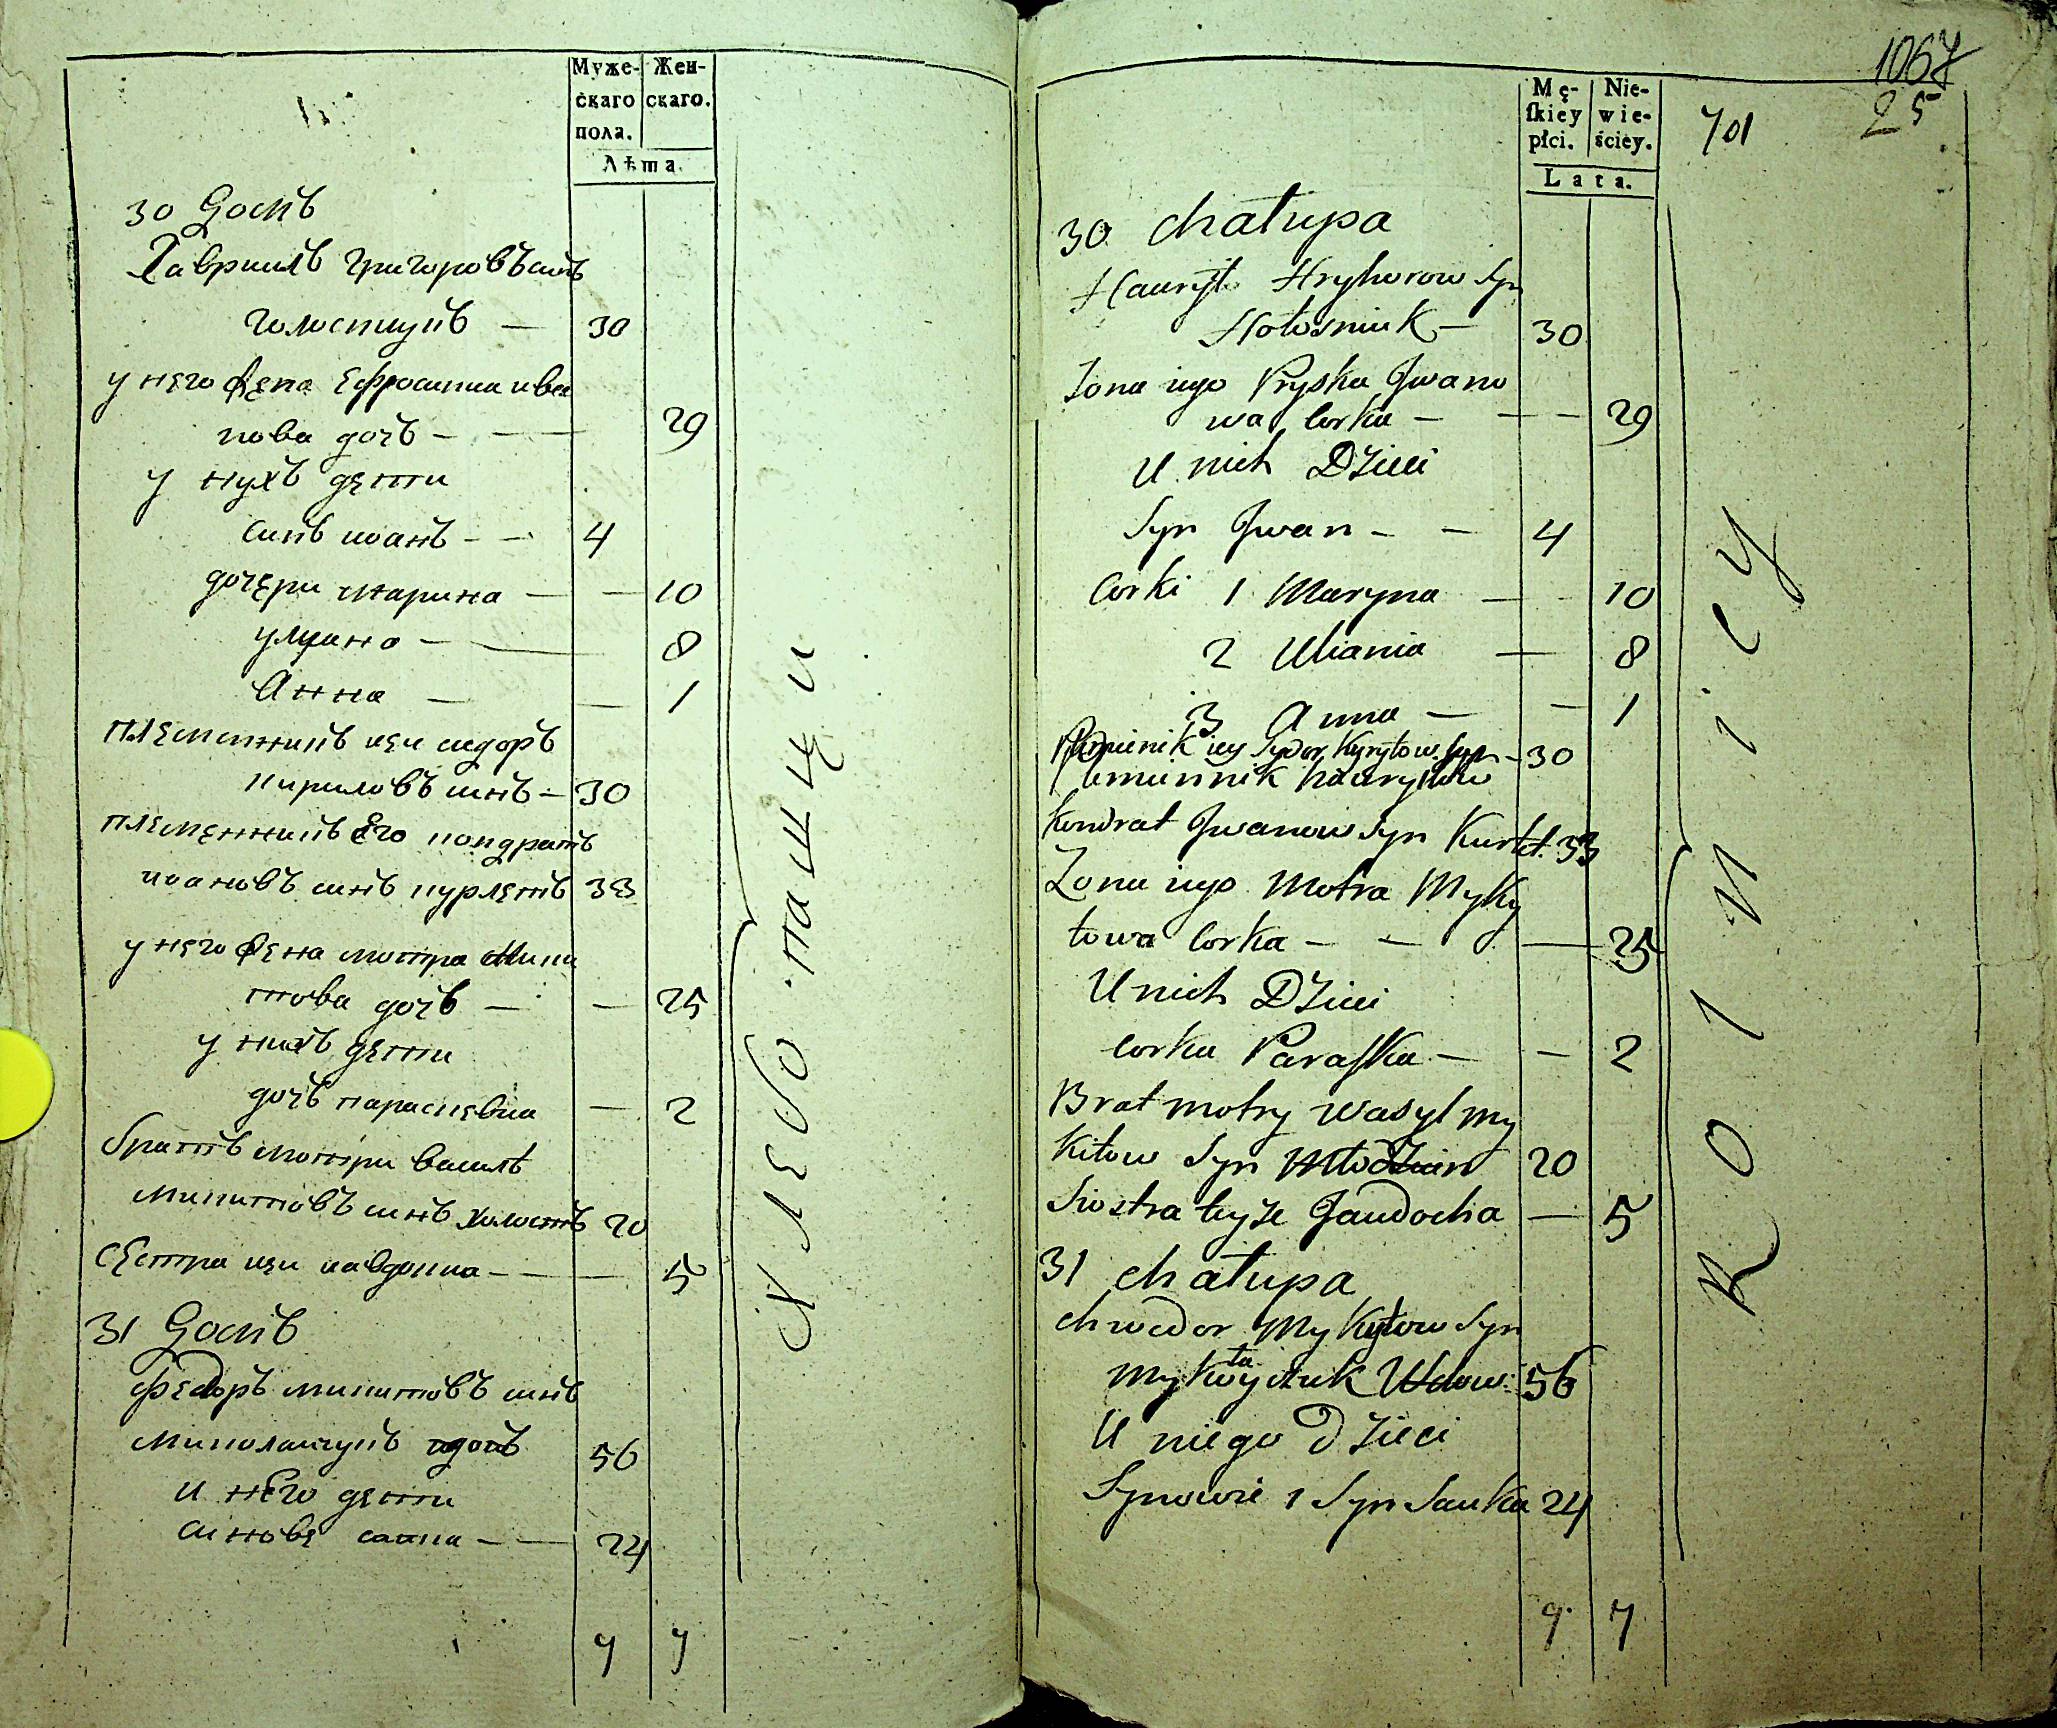 Муже-
скаго
пола.
Жен-
скаго.
Лѣта.
30 Домъ
Гавриилъ Григоровъ синъ
Голоснюкъ — 30
у него жена Ефросинна ива
нова дочъ — 29
у нихъ дети
синъ иоанъ — 4
дочери Марина — 10
улияна — 8
Анна — 1
племенникъ ея сидоръ
Кириловъ синъ — 30
племенникъ Его кондратъ
иоановъ синъ курлетъ 33
у него жена мотра Мики
това дочъ — 25
у нихъ дети
дочъ параскевиа — 2
братъ мотри василъ
микитовъ синъ холостъ 20
сестра ея иавдокиа — 5
31 Домъ
Федоръ микитовъ синъ
вдовъ 56
и нЕго дети
синовя савка — 24
7 7
хлебопашци
1067
25
701
Mę-
skiey
płci.
Nie-
wie-
ściey.
Lata.
30 chałupa
Haurył Hryhorow Syn
Hołosniuk — 30
Zona iego Pryska Jwano
wa Corka — 29
U nich Dzieci
Syn Jwan — 4
Corki 1 Maryna — 10
2 Uliania — 8
3 Anna — 1
Plemienik iey Sydor Kyryłow Syn — 30
Plemiennik hauryłow
Kondrat Jwanow Syn Kurlet. 33
Zona iego Motra Myky
towa Corka — 25
U nich Dzieci
Corka Paraska — 2
Brat motry Wasyl my
kitow Syn Młodzian 20
Siostra teyże Jaudocha — 5
31 chałupa
Chwedor Mykytow Syn
Wdow. 56
U niego Dzieci
Synowie 1 Syn Sauka 24
9 7
Rolnicy